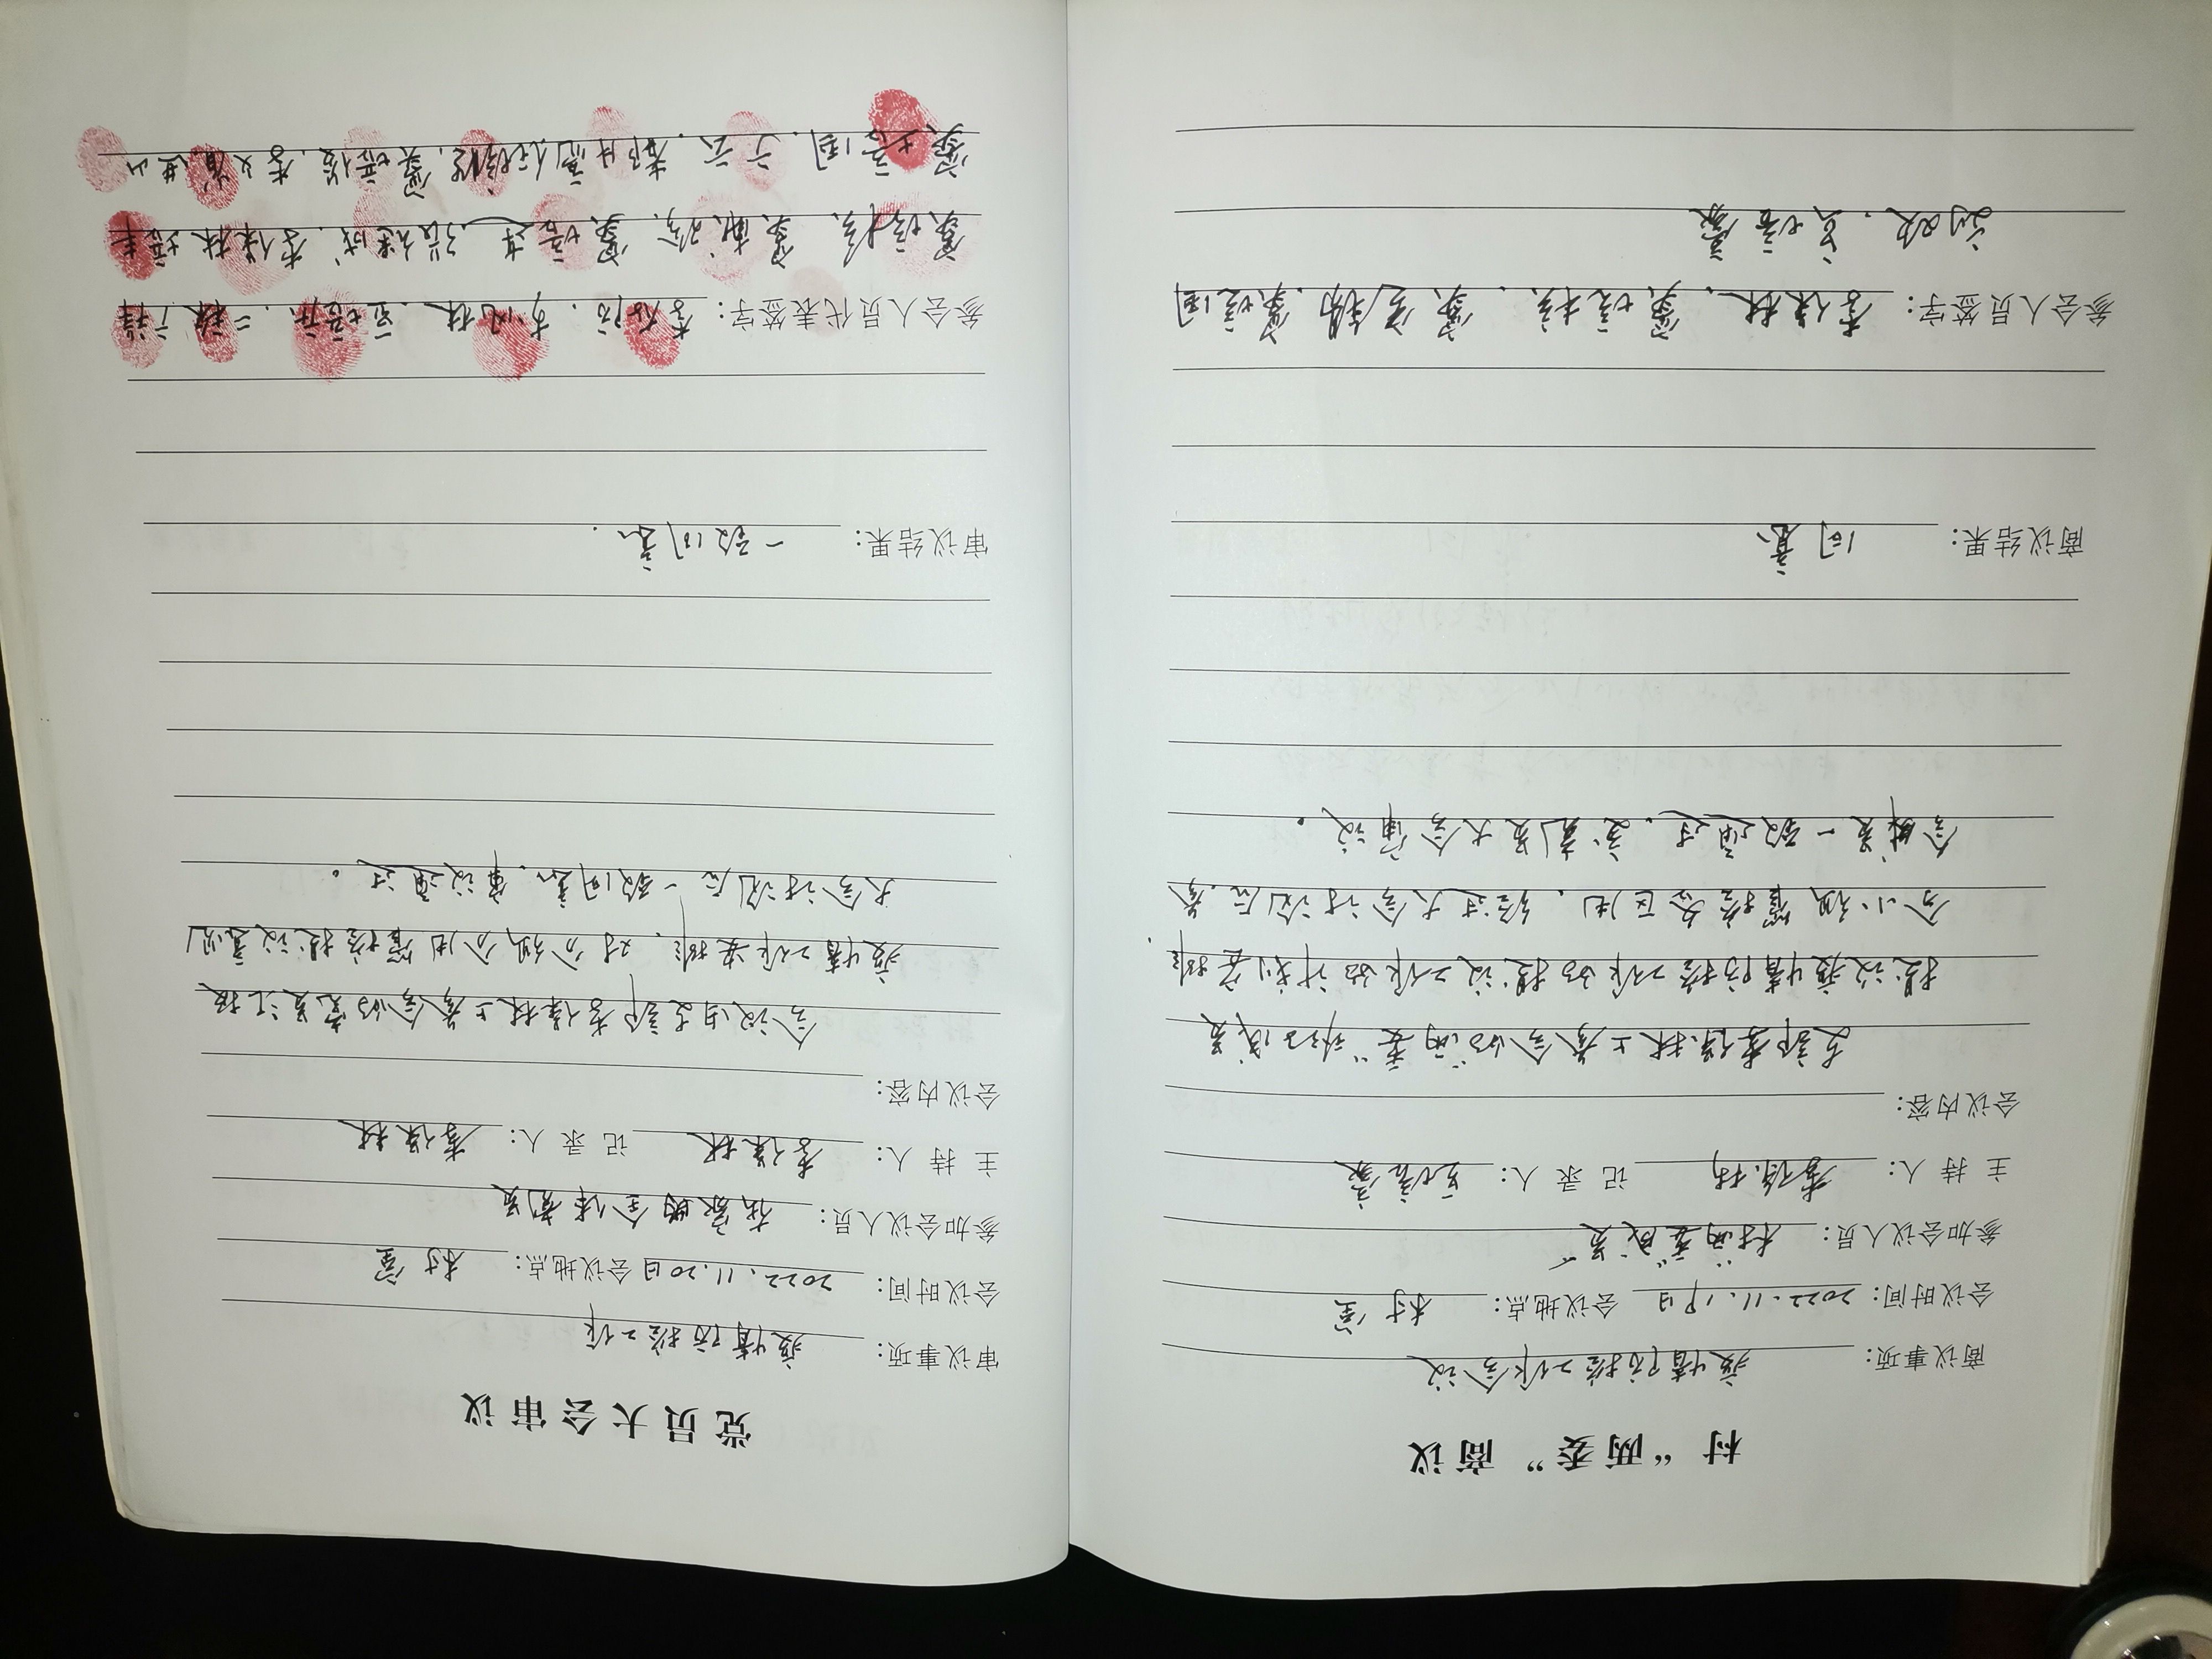 村“两委”商议
商议事项: 疫情防控工作会议
会议时间: 2022.11.19日 会议地点: 村室
参加会议人员: 村“两委”成员”
主持人: 李保林 记录人: 豆培豪
会议内容:
支部李保林上参会的“两委”班子成员
提议疫情防控工作的提议工作的计划安排,
分小组管控各区屯.经过大会讨论后.参
会成员一致通过.交党员大会审议。
商议结果: 同意
参会人员签字: 李保林、窦培核、窦宪锡、窦培国
刘欢、豆培豪
党员大会审议
审议事项: 疫情防控工作
会议时间: 2022.11.20日 会议地点: 村室
参加会议人员: 在家的全体党员
主持人: 李保林 记录人: 李保林
会议内容:
会议由支部李保林上参会的党员汇报
疫情工作安排、对分组分屯管控提议意见
大会讨论后一致同意、审议通过。
审议结果: 一致同意.
参会人员代表签字: 李存防、李凤林、豆培庆、广祥
窦培核、窦献珍、窦培连、张继成、李保林 培丰
窦培国、广云、都月亮 窦培俊、李义 进山